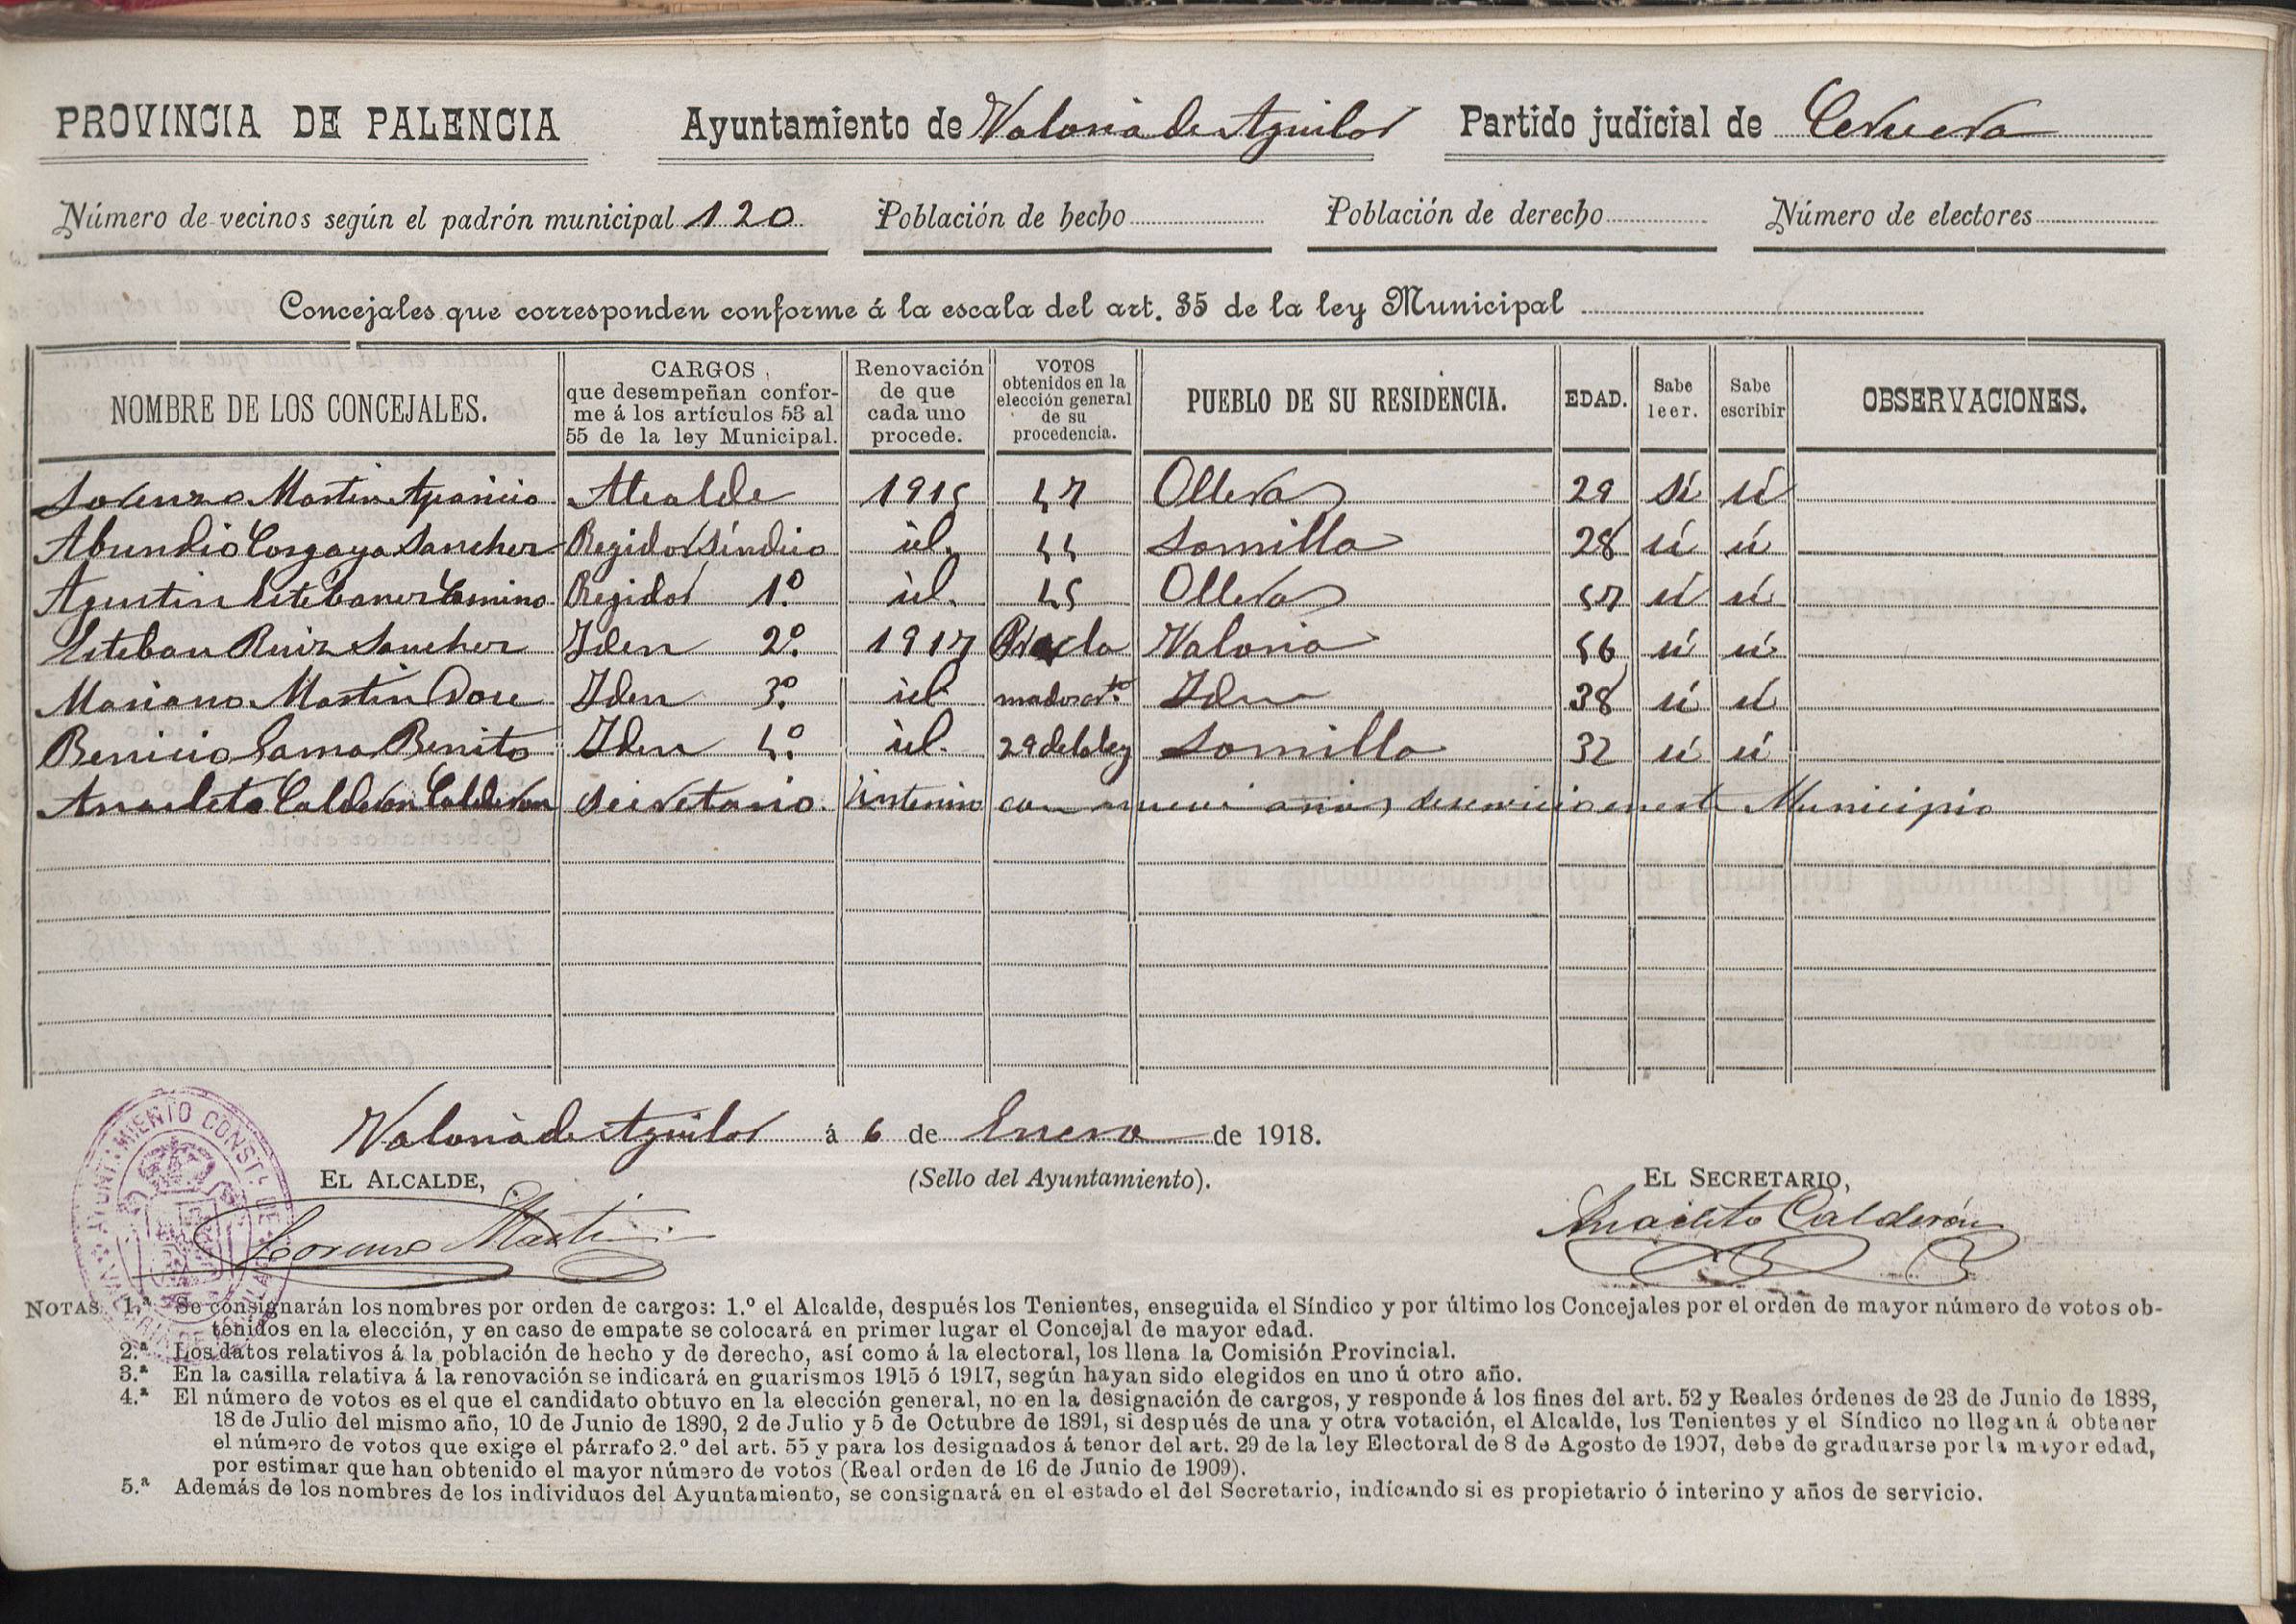 PROVINCIA DE PALENCIA Ayuntamiento de Valoria de Aguilar Partido judicial de Cervera
Número de vecinos según el padrón municipal 120 Población de hecho Población de derecho Número de electores
Concejales que corresponden conforme á la escala del art. 35 de la ley Municipal
NOMBRE DE LOS CONCEJALES. CARGOS que desempeñan conforme á los artículos 53 al 55 de la ley Municipal. Renovación de que cada uno procede. VOTOS obtenidos en la elección general de su procedencia. PUEBLO DE SU RESIDENCIA. EDAD. Sabe leer. Sabe escribir OBSERVACIONES.
Lorenzo Martin Aparicio Alcalde 1915 47 Olleros 29 sí sí
Abundio Corgaya Sanchez Regidor Síndico id. 44 Lomilla 28 sí sí
Agustin Estebanez Camino Regidor 1º id. 45 Olleros 57 sí sí
Esteban Ruiz Sanchez Iden 2º 1917 Procla Valoria 56 sí sí
Mariano Martin Dore Iden 3º id. mados art.º Iden 38 sí sí
Benicio Lama Benito Iden 4º id. 29 de la ley Lomilla 32 sí sí
Anacleto Calderon Calderon Secretario Interino con nueve años de servicio en este Municipio
Valoria de Aguilar á 6 de Enero de 1918.
EL ALCALDE, (Sello del Ayuntamiento). EL SECRETARIO,
Lorenzo Martin Anacleto Calderón
AYUNTAMIENTO CONST. DE VALORIA DE AGUILAR
NOTAS 1.ª Se consignarán los nombres por orden de cargos: 1.º el Alcalde, después los Tenientes, enseguida el Síndico y por último los Concejales por el orden de mayor número de votos ob-
tenidos en la elección, y en caso de empate se colocará en primer lugar el Concejal de mayor edad.
2.ª Los datos relativos á la población de hecho y de derecho, así como á la electoral, los llena la Comisión Provincial.
3.ª En la casilla relativa á la renovación se indicará en guarismos 1915 ó 1917, según hayan sido elegidos en uno ú otro año.
4.ª El número de votos es el que el candidato obtuvo en la elección general, no en la designación de cargos, y responde á los fines del art. 52 y Reales órdenes de 23 de Junio de 1888,
18 de Julio del mismo año, 10 de Junio de 1890, 2 de Julio y 5 de Octubre de 1891, si después de una y otra votación, el Alcalde, los Tenientes y el Síndico no llegan á obtener
el número de votos que exige el párrafo 2.º del art. 55 y para los designados á tenor del art. 29 de la ley Electoral de 8 de Agosto de 1907, debe de graduarse por la mayor edad,
por estimar que han obtenido el mayor número de votos (Real orden de 16 de Junio de 1909).
5.ª Además de los nombres de los individuos del Ayuntamiento, se consignará en el estado el del Secretario, indicando si es propietario ó interino y años de servicio.